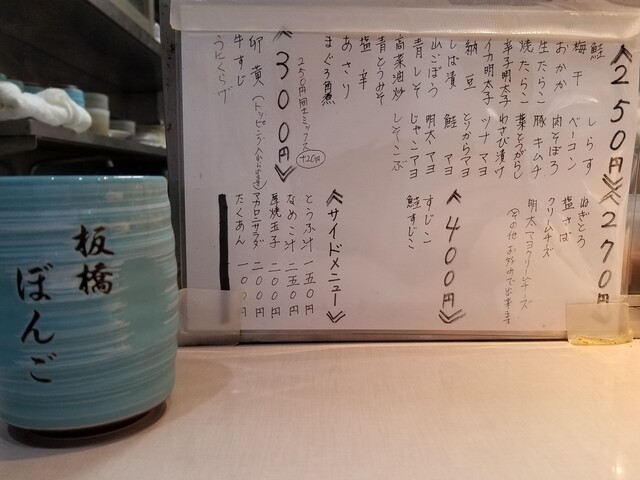 ≪250円≫
鮭
梅干
おかか
生たらこ
焼たらこ
辛子明太子
イカ明太子
納豆
しば漬
山ごぼう
青しそ
高菜油炒
青とうみそ
塩辛
あさり
まぐろ角煮
しらす
ベーコン
肉そぼろ
豚キムチ
葉とうがらし
わさび漬け
ツナマヨ
とりからマヨ
鮭マヨ
明太マヨ
じゃこマヨ
しそこぶ
≪270円
ねぎとろ
塩さば
クリームチーズ
明太マヨクリームチーズ
≪300円≫
250円同士ミックス
+20円
卵黄
牛すじ
うにくらげ
≪400円≫
すじこ
鮭すじこ
≪サイドメニュー≫
とうふ汁 一五〇円
なめこ汁 二五〇円
厚焼玉子 二〇〇円
マカロニサラダ 二〇〇円
たくあん 一〇〇円
板橋
ぼんご